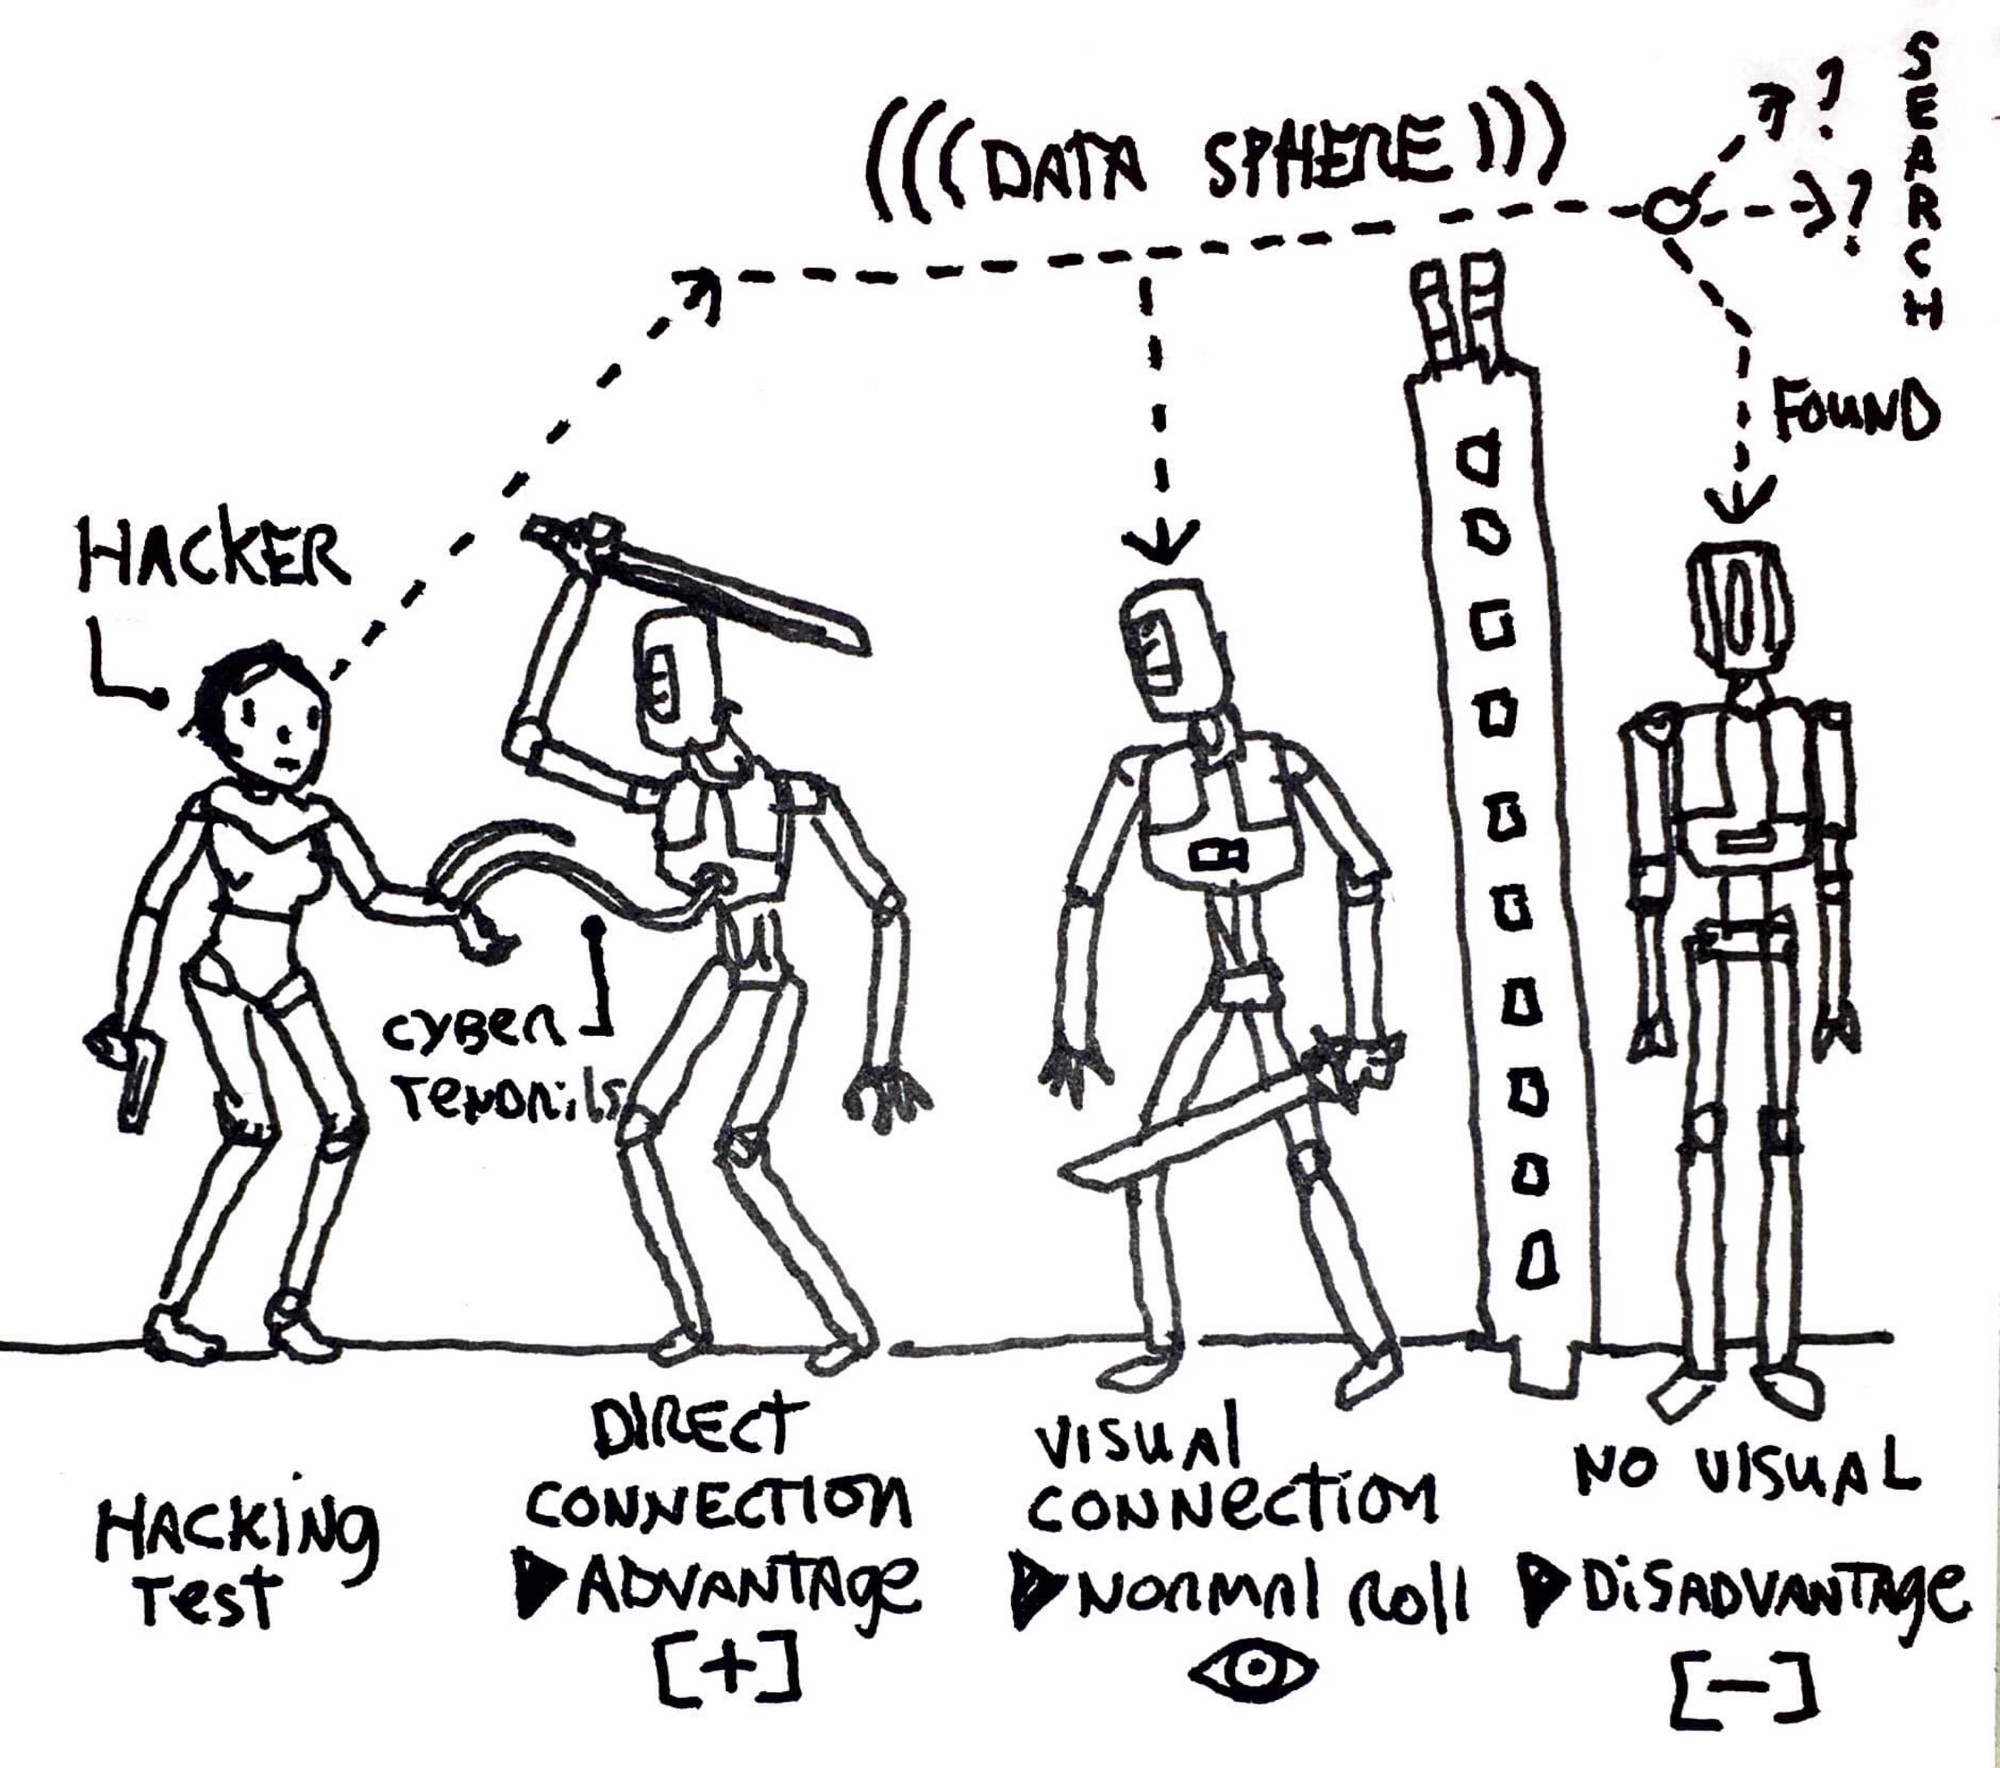 (((DATA SPHERE)))
?
?
SEARCH
FOUND
HACKER
CYBER
TENDRILS
HACKING
TEST
DIRECT
CONNECTION
▶ADVANTAGE
[+]
VISUAL
CONNECTION
▶NORMAL ROLL
NO VISUAL
▶DISADVANTAGE
[-]